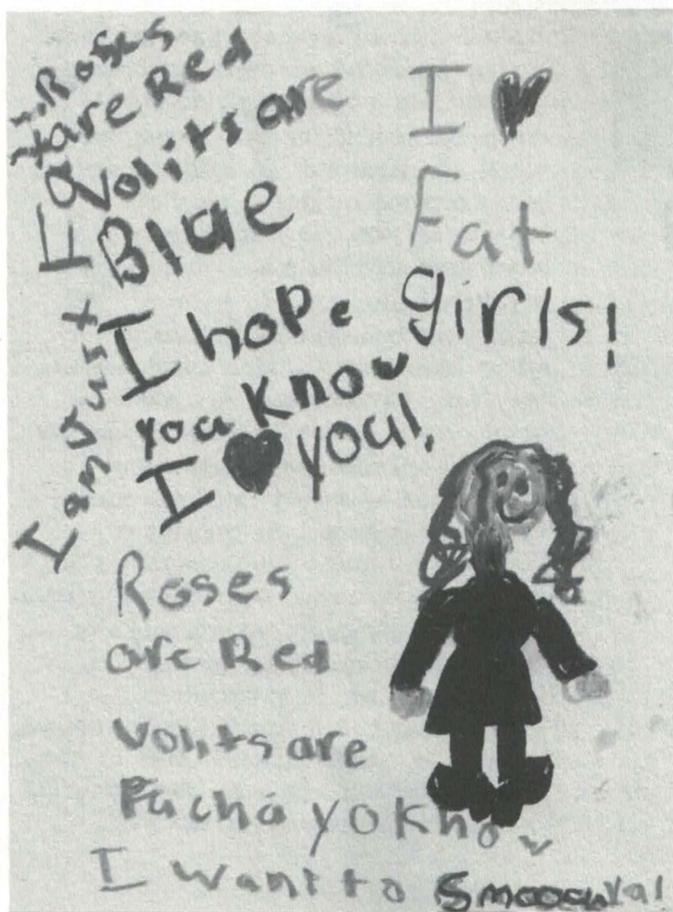 Roses
are Red
Volits are
Blue
I hope
you know
I ♥ you!
I am Just
I ♥
Fat
girls!
Roses
are Red
Volits are
Fucha yo know
I want to Smooch ya!